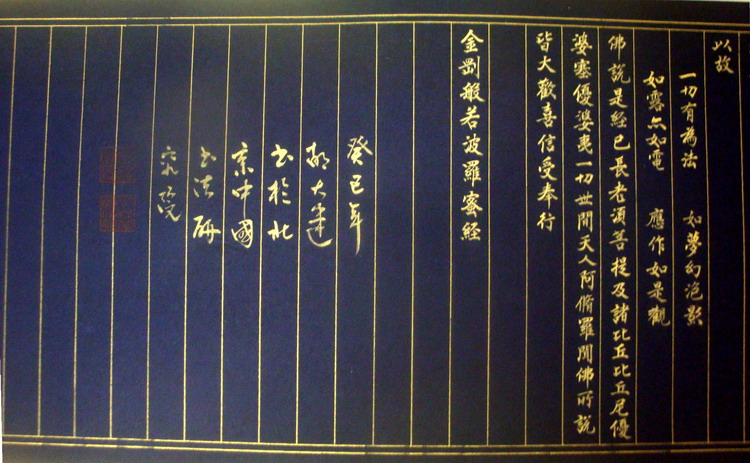 以故
一切有為法 如夢幻泡影
如露亦如電 應作如是觀
佛說是經已長老須菩提及諸比丘比丘尼優
婆塞優婆夷一切世間天人阿脩羅聞佛所說
皆大歡喜信受奉行
金剛般若波羅蜜經
癸巳年
大達
書於北
京中國
書法研
究院